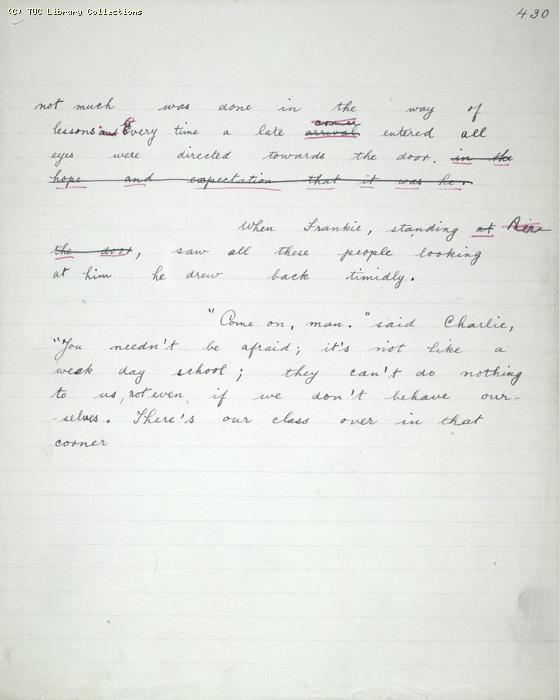 (C) TUC Library Collections
430
not much was done in the way of
lessons and Every time a late comer arrival entered all
eyes were directed towards the door. in the
hope and expectation that it was he.
When Frankie, standing at
the door, saw all these people looking
at him he drew back timidly.
"Come on, man." said Charlie,
"You needn't be afraid; it's not like a
week day school; they can't do nothing
to us, not even if we don't behave our-
-selves. There's our class over in that
corner